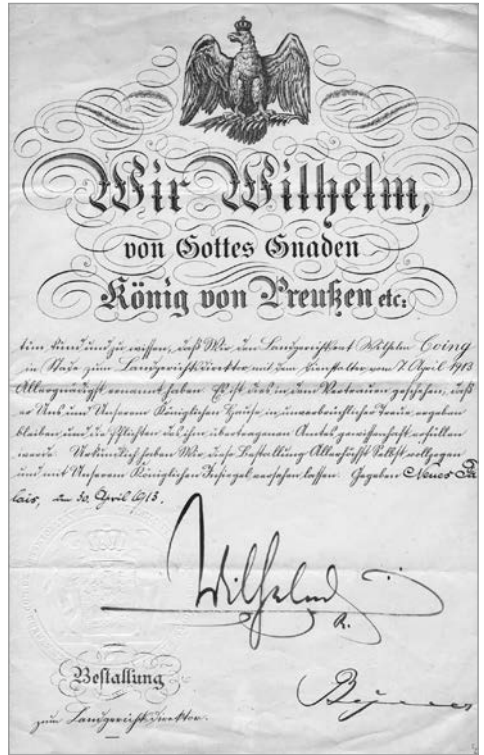 Wir Wilhelm,
von Gottes Gnaden
König von Preußen etc:
tun kund und zu wissen, daß Wir den Landgerichtsrat Wilhelm Coing
in Stade zum Landgerichtsdirektor mit dem Dienstalter vom 7. April 1913
Allergnädigst ernannt haben. Es ist dies in dem Vertrauen geschehen, daß
er Uns und Unserem Königlichen Hause in unverbrüchlicher Treue ergeben
bleiben und die Pflichten des ihm übertragenen Amtes gewissenhaft erfüllen
werde. Urkundlich haben Wir diese Bestallung Allerhöchst Selbst vollzogen
und mit Unserem Königlichen Insiegel versehen lassen. Gegeben Neues Pa-
lais, den 30. April 1913.
Wilhelm
R.
Bestallung
zum Landgerichtsdirektor.